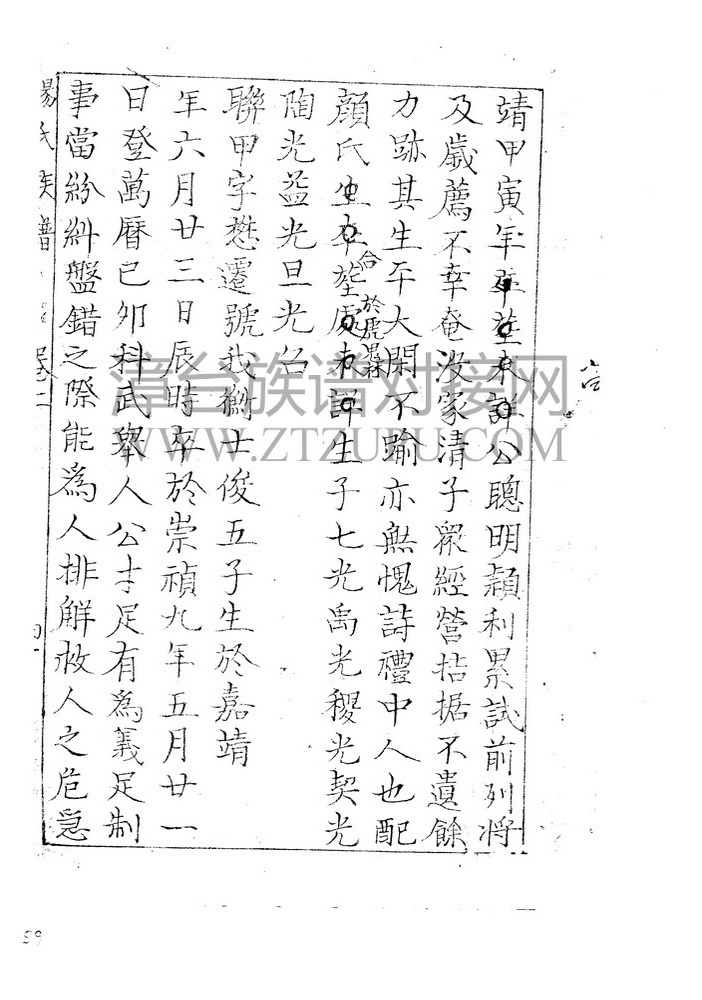 靖甲寅年卒塋未詳公聰明穎利累試前列將
及歲薦不幸奄沒家清子眾經營拮据不遺餘
力跡其生平大閑不踰亦無愧詩禮中人也配
顏氏生卒塋處未詳生子七光禹光稷光契光
合於虎
陶光益光旦光侣
聯甲字懋遷號我衡士俊五子生於嘉靖
年六月廿三日辰時卒於崇禎九年五月廿一
日登萬曆己卯科武舉人公才足有為義足制
事當紛糾盤錯之際能為人排解救人之危急
楊氏族譜 卷二
漳台族谱对接网
WWW.ZTZUPU.COM
59